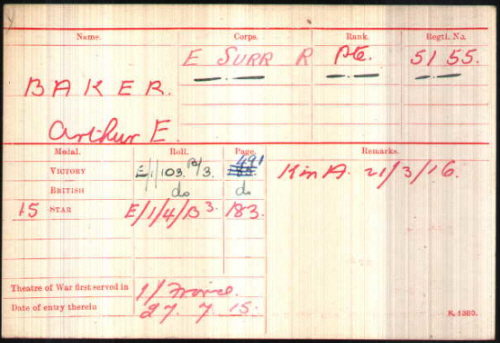 Name. Corps. Rank. Regtl. No.
E SURR R Pte. 5155.
BAKER.
Arthur E.
Medal. Roll. Page. Remarks.
VICTORY E/1/103.B/3. 491 KinA. 21/3/16.
BRITISH do do
15 STAR E/1/4/B3. 183.
Theatre of War first served in
Date of entry therein 27. 7. 15.
K. 1380.